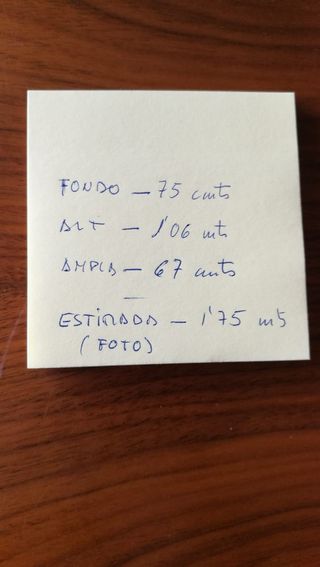 FONDO — 75 cmts
ALT — 1'06 mts
AMPLA — 67 cmts
—
ESTIRADA — 1'75 mts
(FOTO)